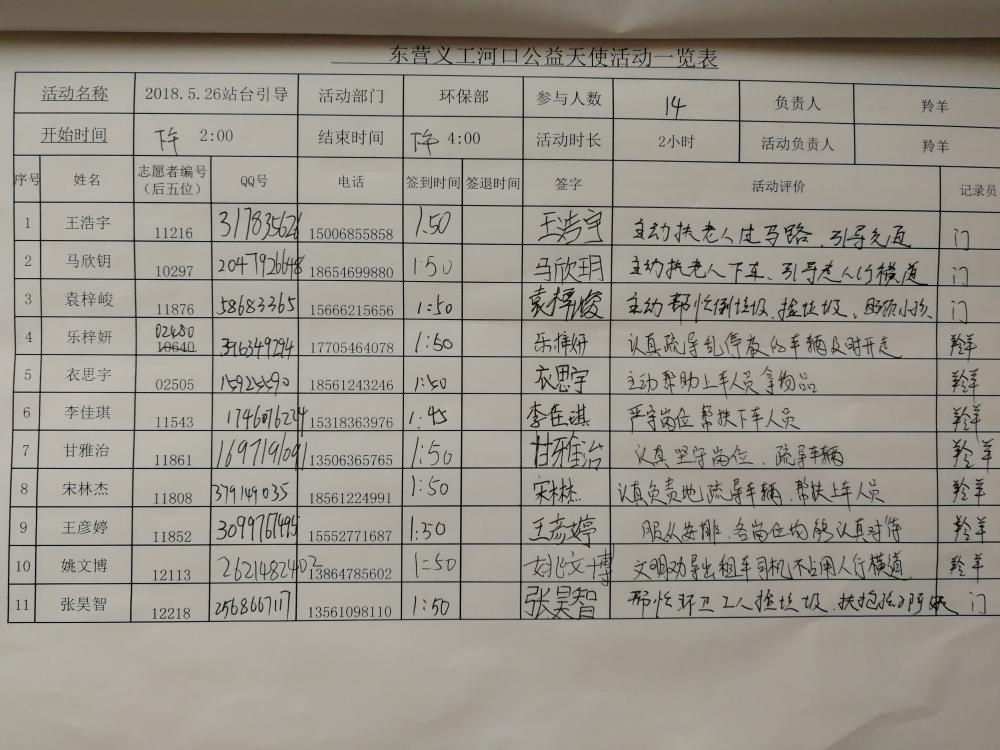 东营义工河口公益天使活动一览表
活动名称 2018.5.26站台引导 活动部门 环保部 参与人数 14 负责人 羚羊
开始时间 下午 2:00 结束时间 下午 4:00 活动时长 2小时 活动负责人 羚羊
序号 姓名 志愿者编号（后五位） QQ号 电话 签到时间 签退时间 签字 活动评价 记录员
1 王浩宇 11216 317835626 15006855858 1:50 王浩宇 主动扶老人过马路、引导交通 门
2 马欣钥 10297 2047926648 18654699880 1:50 马欣玥 主动扶老人下车、引导老人行横道 门
3 袁梓峻 11876 58683365 15666215656 1:50 袁梓峻 主动帮忙倒垃圾、捡垃圾、照顾小孩 门
4 乐梓妍 02480 10640 17705464078 1:50 乐梓妍 认真疏导乱停放的车辆及时开走 羚羊
5 衣思宇 02505 18561243246 1:50 衣思宇 主动帮助上车人员拿物品 羚羊
6 李佳琪 11543 1746076224 15318363976 1:45 李佳琪 严守岗位 帮扶下车人员 羚羊
7 甘雅治 11861 1697191091 13506365765 1:50 甘雅治 认真坚守岗位、疏导车辆 羚羊
8 宋林杰 11808 379149035 18561224991 1:50 宋林杰 认真负责地疏导车辆、帮扶上车人员 羚羊
9 王彦婷 11852 3099767495 15552771687 1:50 王彦婷 服从安排、各岗位均能认真对待 羚羊
10 姚文博 12113 2621482402 13864785602 1:50 姚文博 文明劝导出租车司机不占用人行横道 羚羊
11 张昊智 12218 2568667117 13561098110 1:50 张昊智 帮忙环卫工人捡垃圾、扶抱孩子阿姨 门